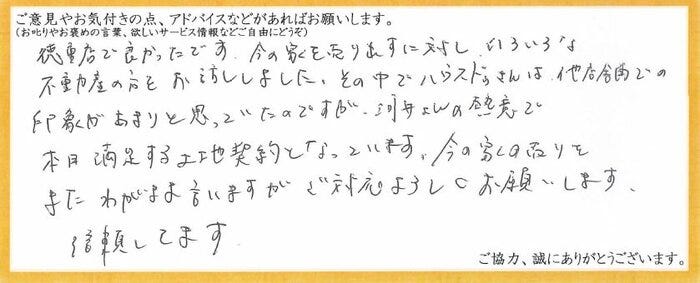 ご意見やお気付きの点、アドバイスなどがあればお願いします。
(お叱りやお褒めの言葉、欲しいサービス情報などご自由にどうぞ)
徳重店で良かったです。今の家を売り出すに対し いろいろな
不動産の方と お話ししました。その中でハウスドゥさんは、他店舗での
印象があまりと思っていたのですが、河井さんの熱意で
本日 満足する土地契約となっています。今の家の売りを
また わがまま言いますが ご対応よろしくお願いします。
信頼してます
ご協力、誠にありがとうございます。